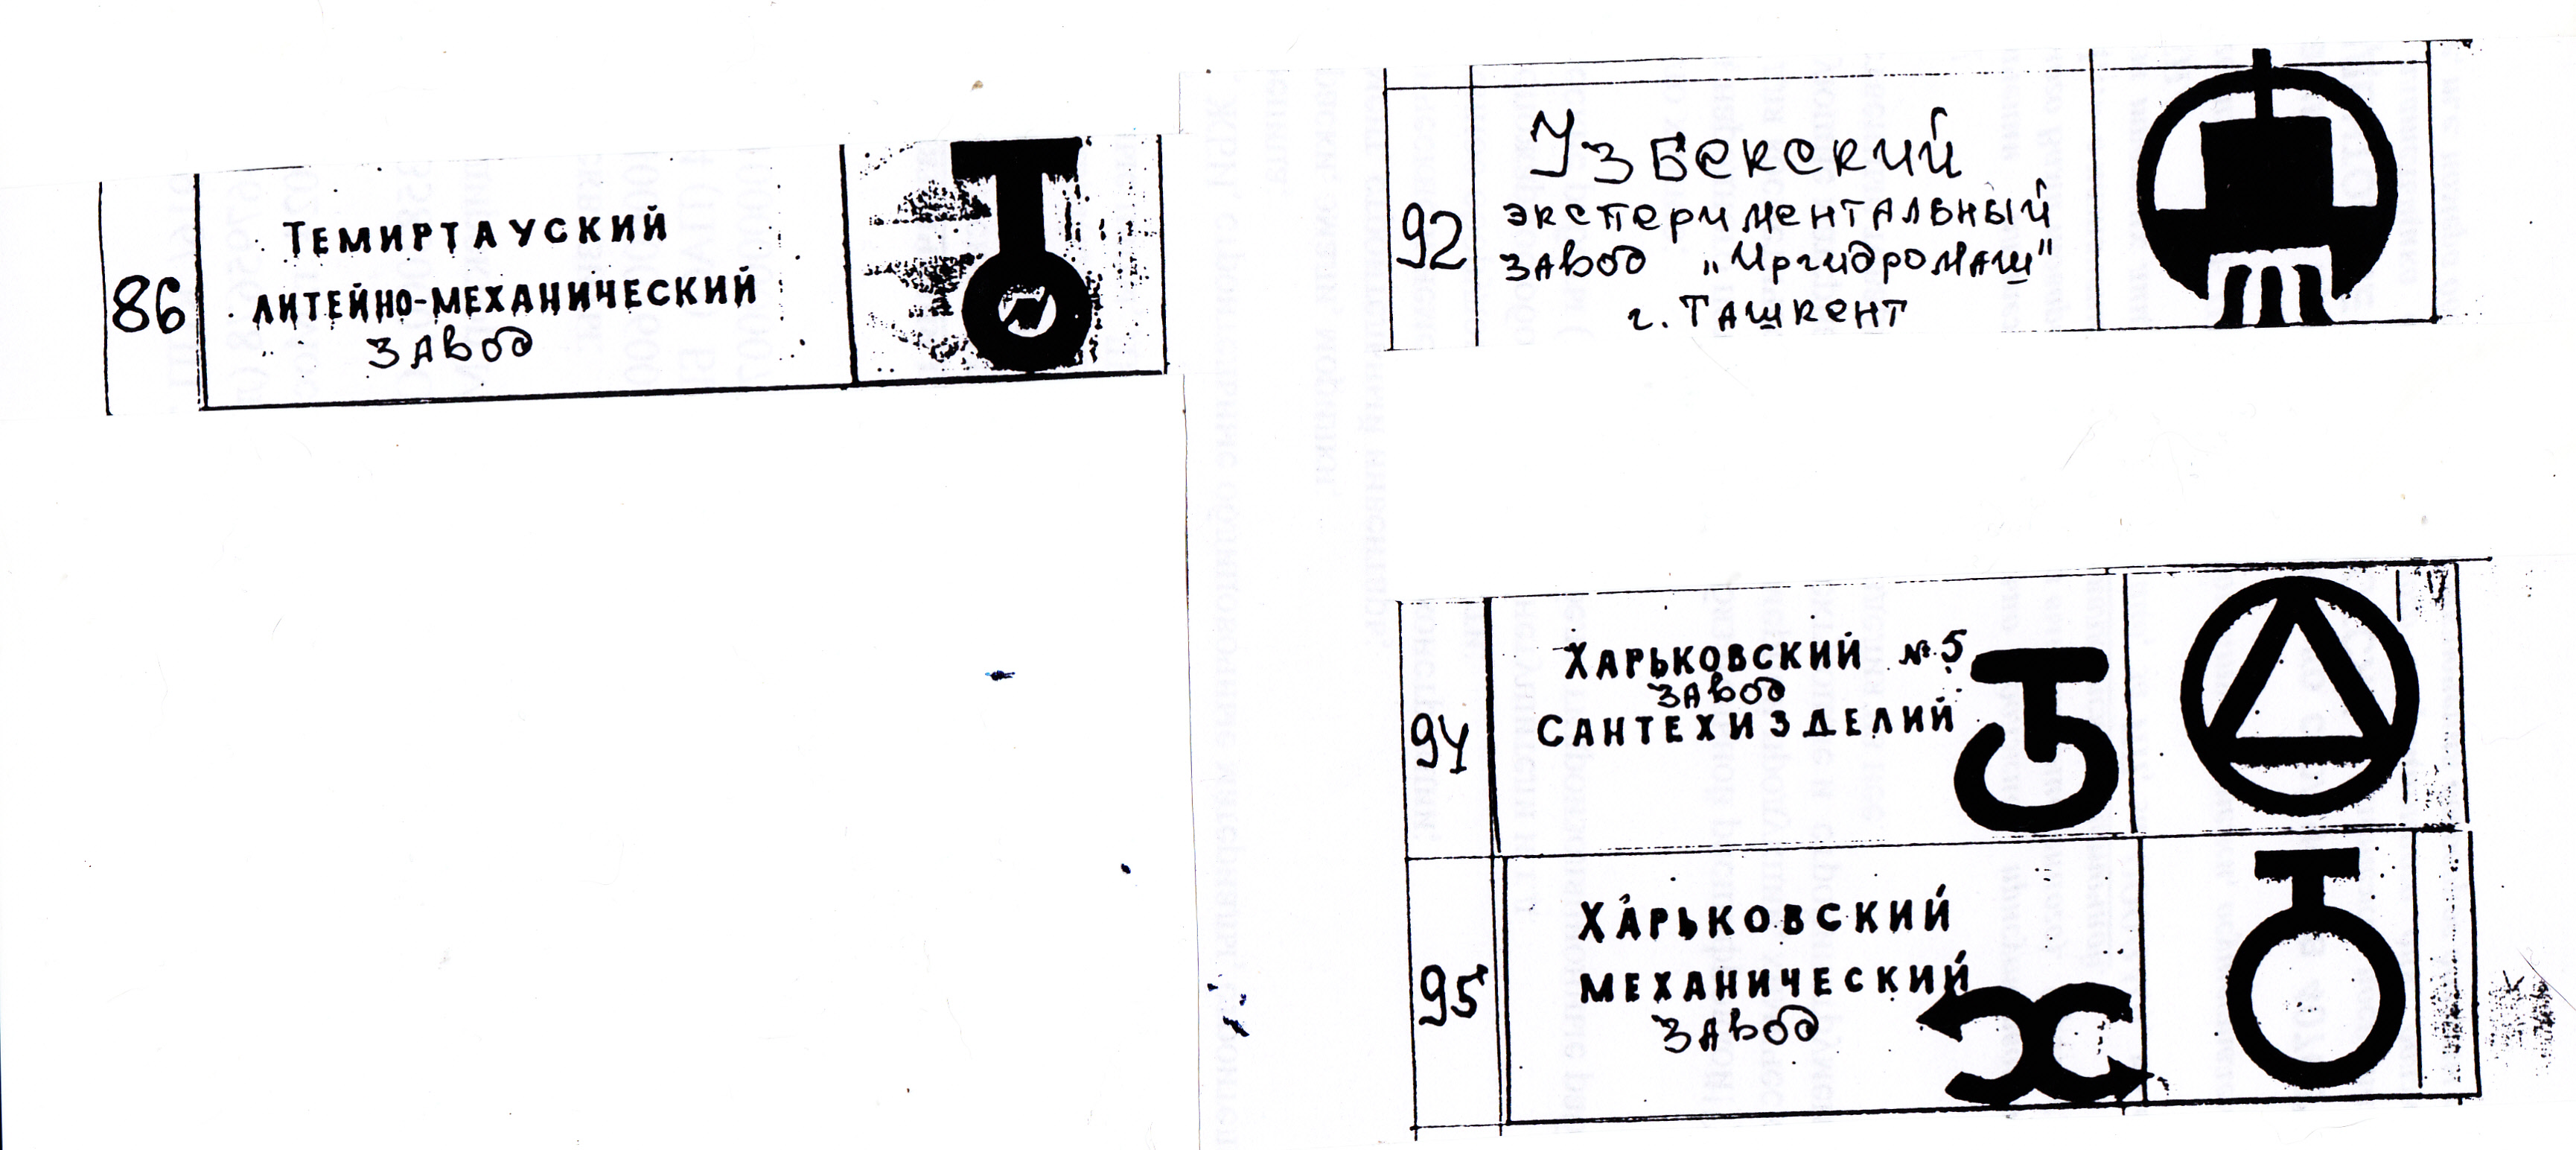 86
Темиртауский
литейно-механический
завод
92
Узбекский
экспериментальный
завод „Иргидромаш"
г. Ташкент
94
Харьковский № 5
завод
Сантехизделий
95
Харьковский
механический
завод